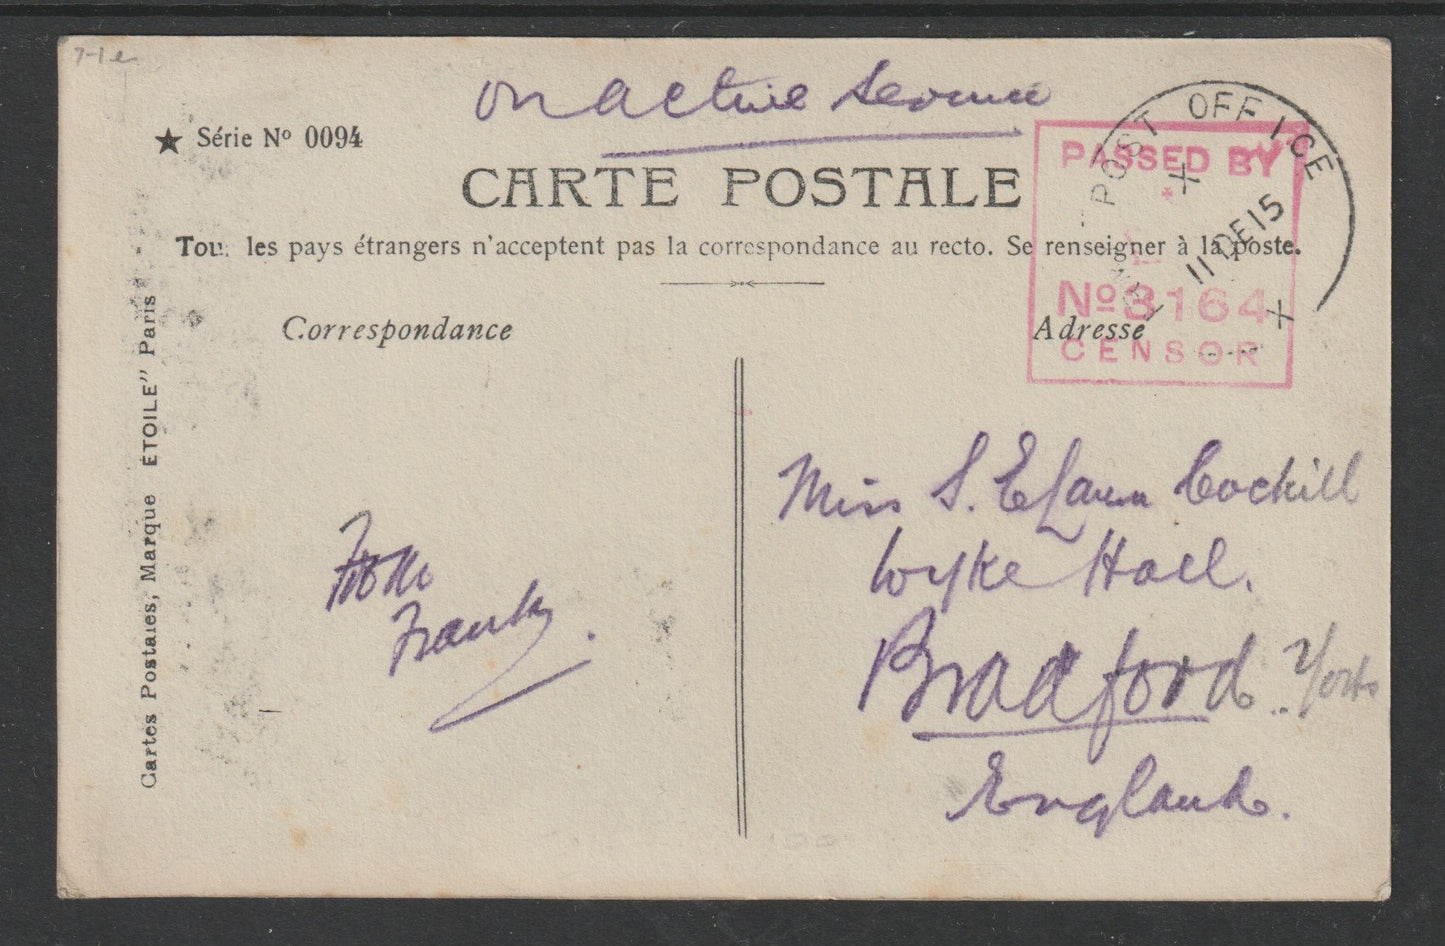 7-1e
On active service
★ Série Nº 0094
CARTE POSTALE
Tou. les pays étrangers n'acceptent pas la correspondance au recto. Se renseigner à la poste.
POST OFFICE
X
11 DE 15
X
PASSED BY
Nº 3164
CENSOR
Correspondance
Adresse
Cartes Postales, Marque ÉTOILE" Paris
From
Frank.
Miss S. Cockill
Wyke Hall.
Bradford.. Yorks
England.